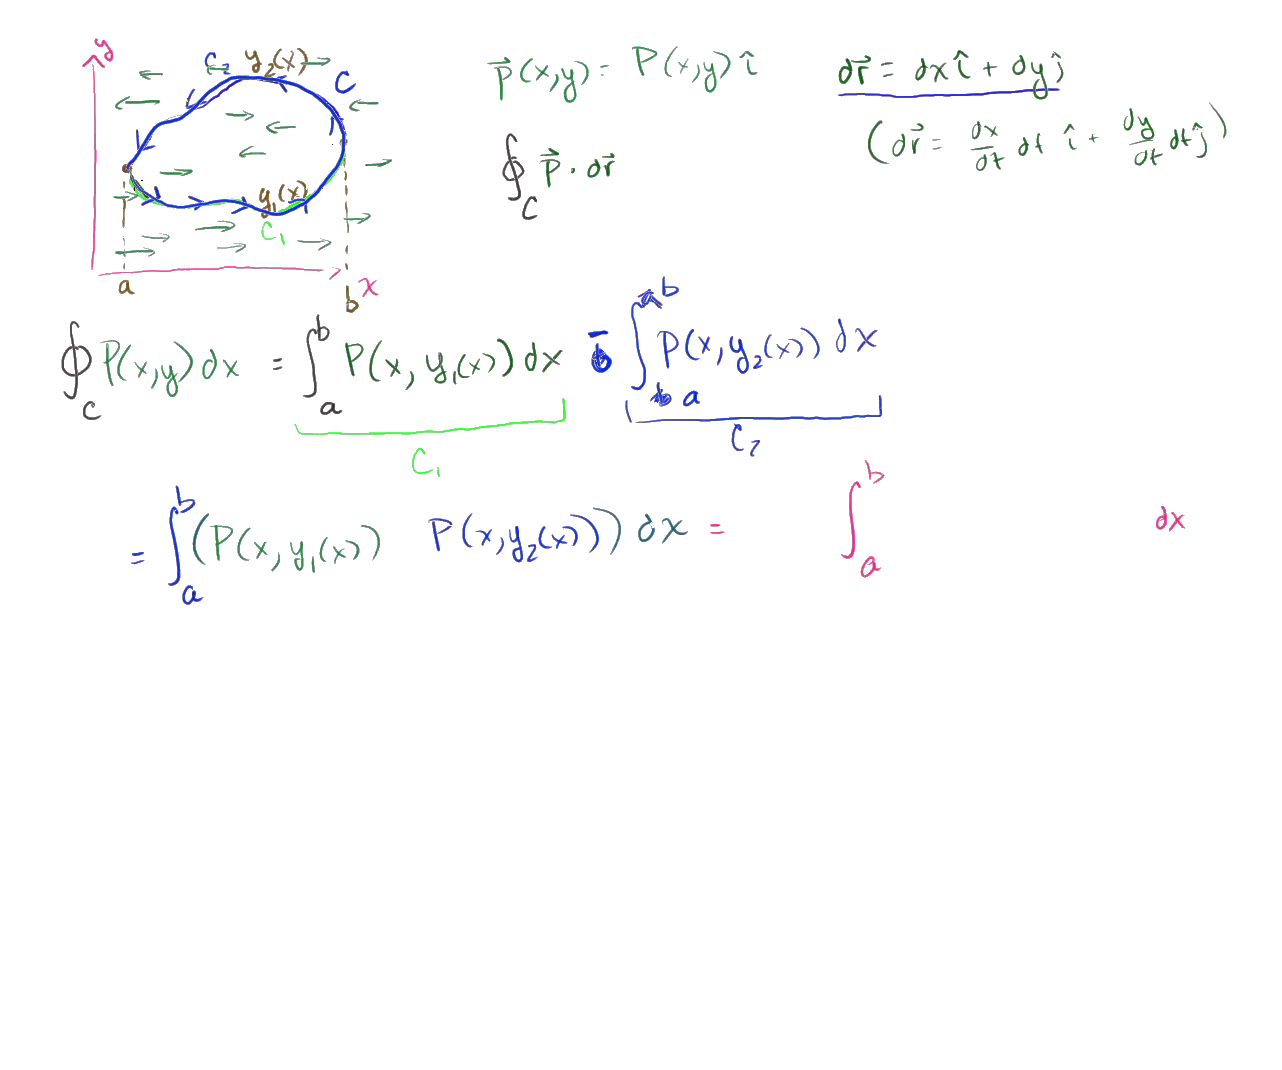 y
C₂ y₂(x) C
y₁(x)
C₁
a b x
p⃗(x,y) = P(x,y) î
∮_C p⃗ · dr⃗
dr⃗ = dx î + dy ĵ
(dr⃗ = dx/dt dt î + dy/dt dt ĵ)
∮_C P(x,y) dx = ∫_a^b P(x, y₁(x)) dx - ∫_a^b P(x, y₂(x)) dx
C₁ C₂
= ∫_a^b (P(x, y₁(x)) P(x, y₂(x))) dx = ∫_a^b dx